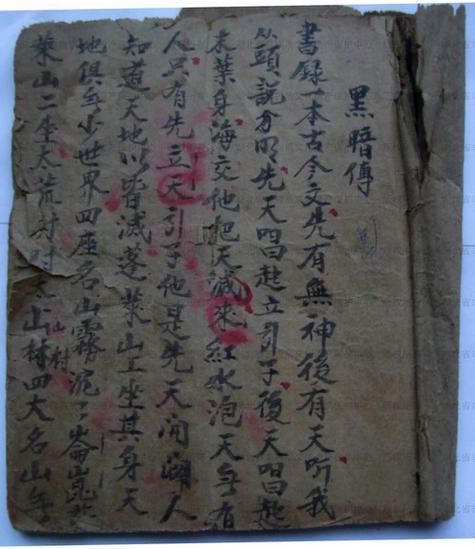 黑暗傳
書録一本古今文先有無神後有天听我
從頭說分明先天唱起立引子後天唱起
末葉身海交他把天滅來紅水泡天無有
人只有先立天引子他是先天開闢人
知道天地以皆滅蓬萊山上坐其身天
地俱無少世界四座名山霧沉了崑崙
萊山二座太荒村山村四大名山無
山村